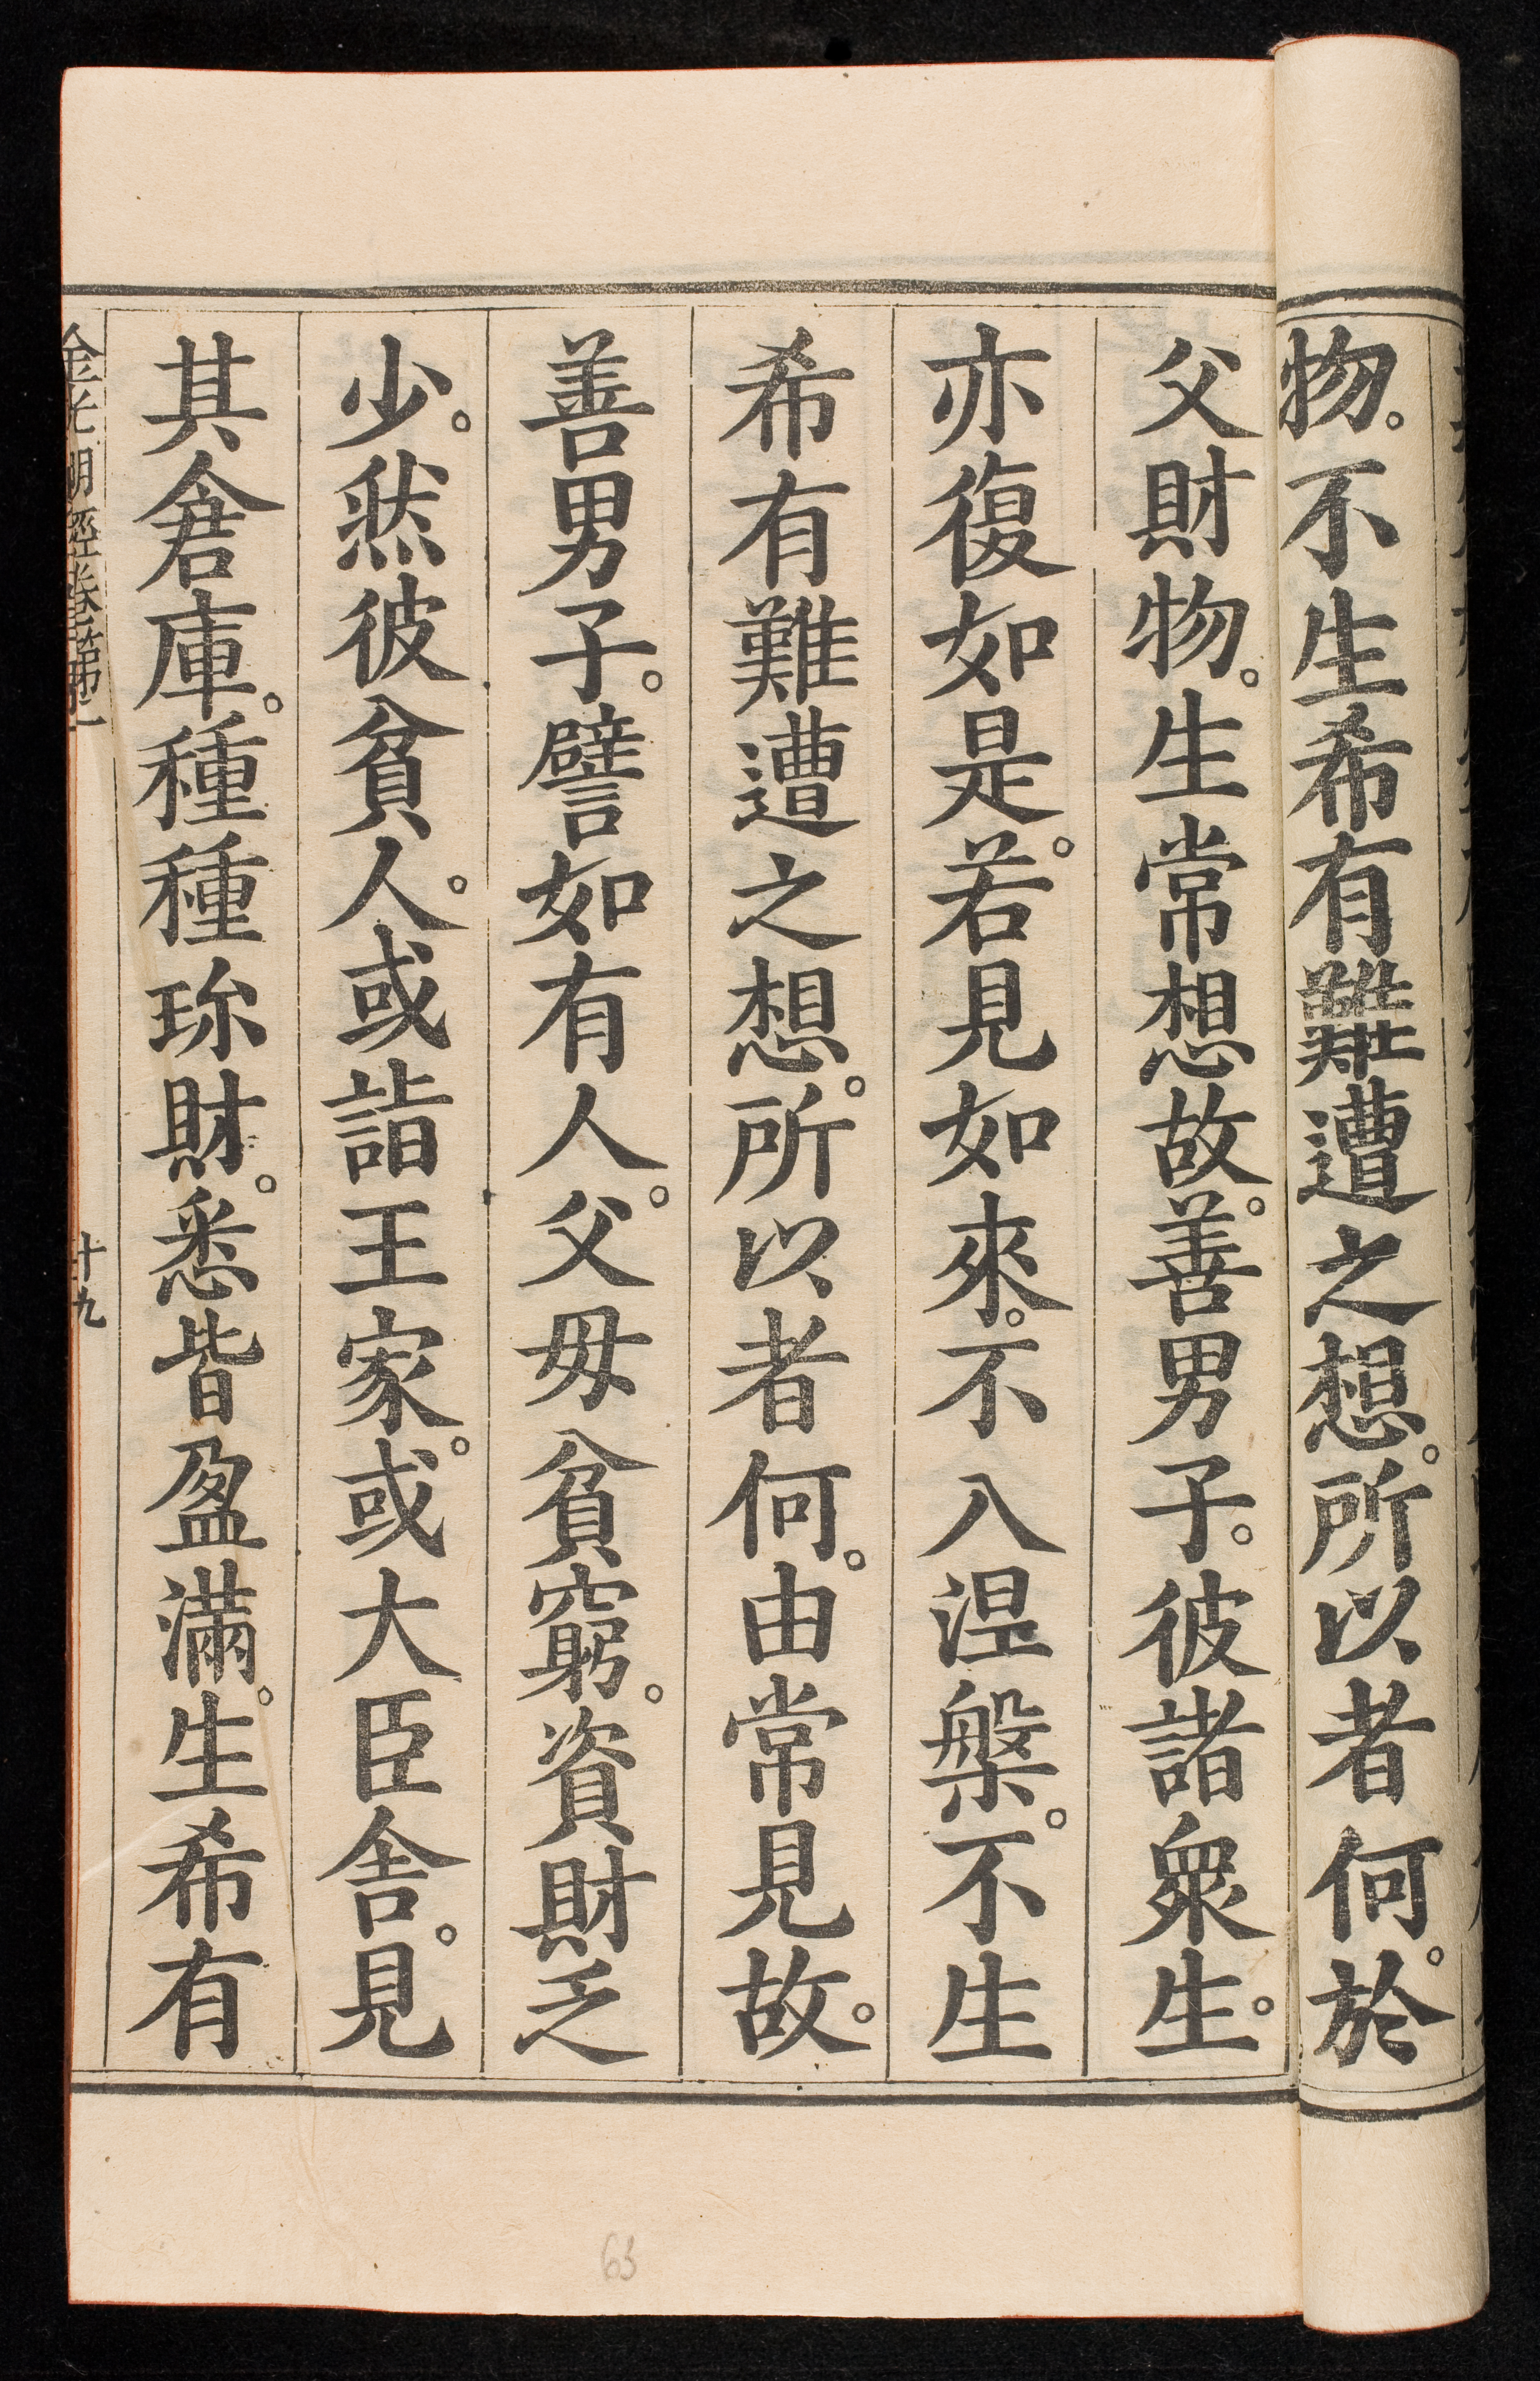 物。不生希有難遭之想。所以者何。於
父財物。生常想故。善男子。彼諸衆生。
亦復如是。若見如來。不入涅槃。不生
希有難遭之想。所以者何。由常見故。
善男子。譬如有人。父母貧窮。資財乏
少。然彼貧人。或詣王家。或大臣舍。見
其倉庫。種種珍財。悉皆盈滿。生希有
金光明經卷第一
十九
63